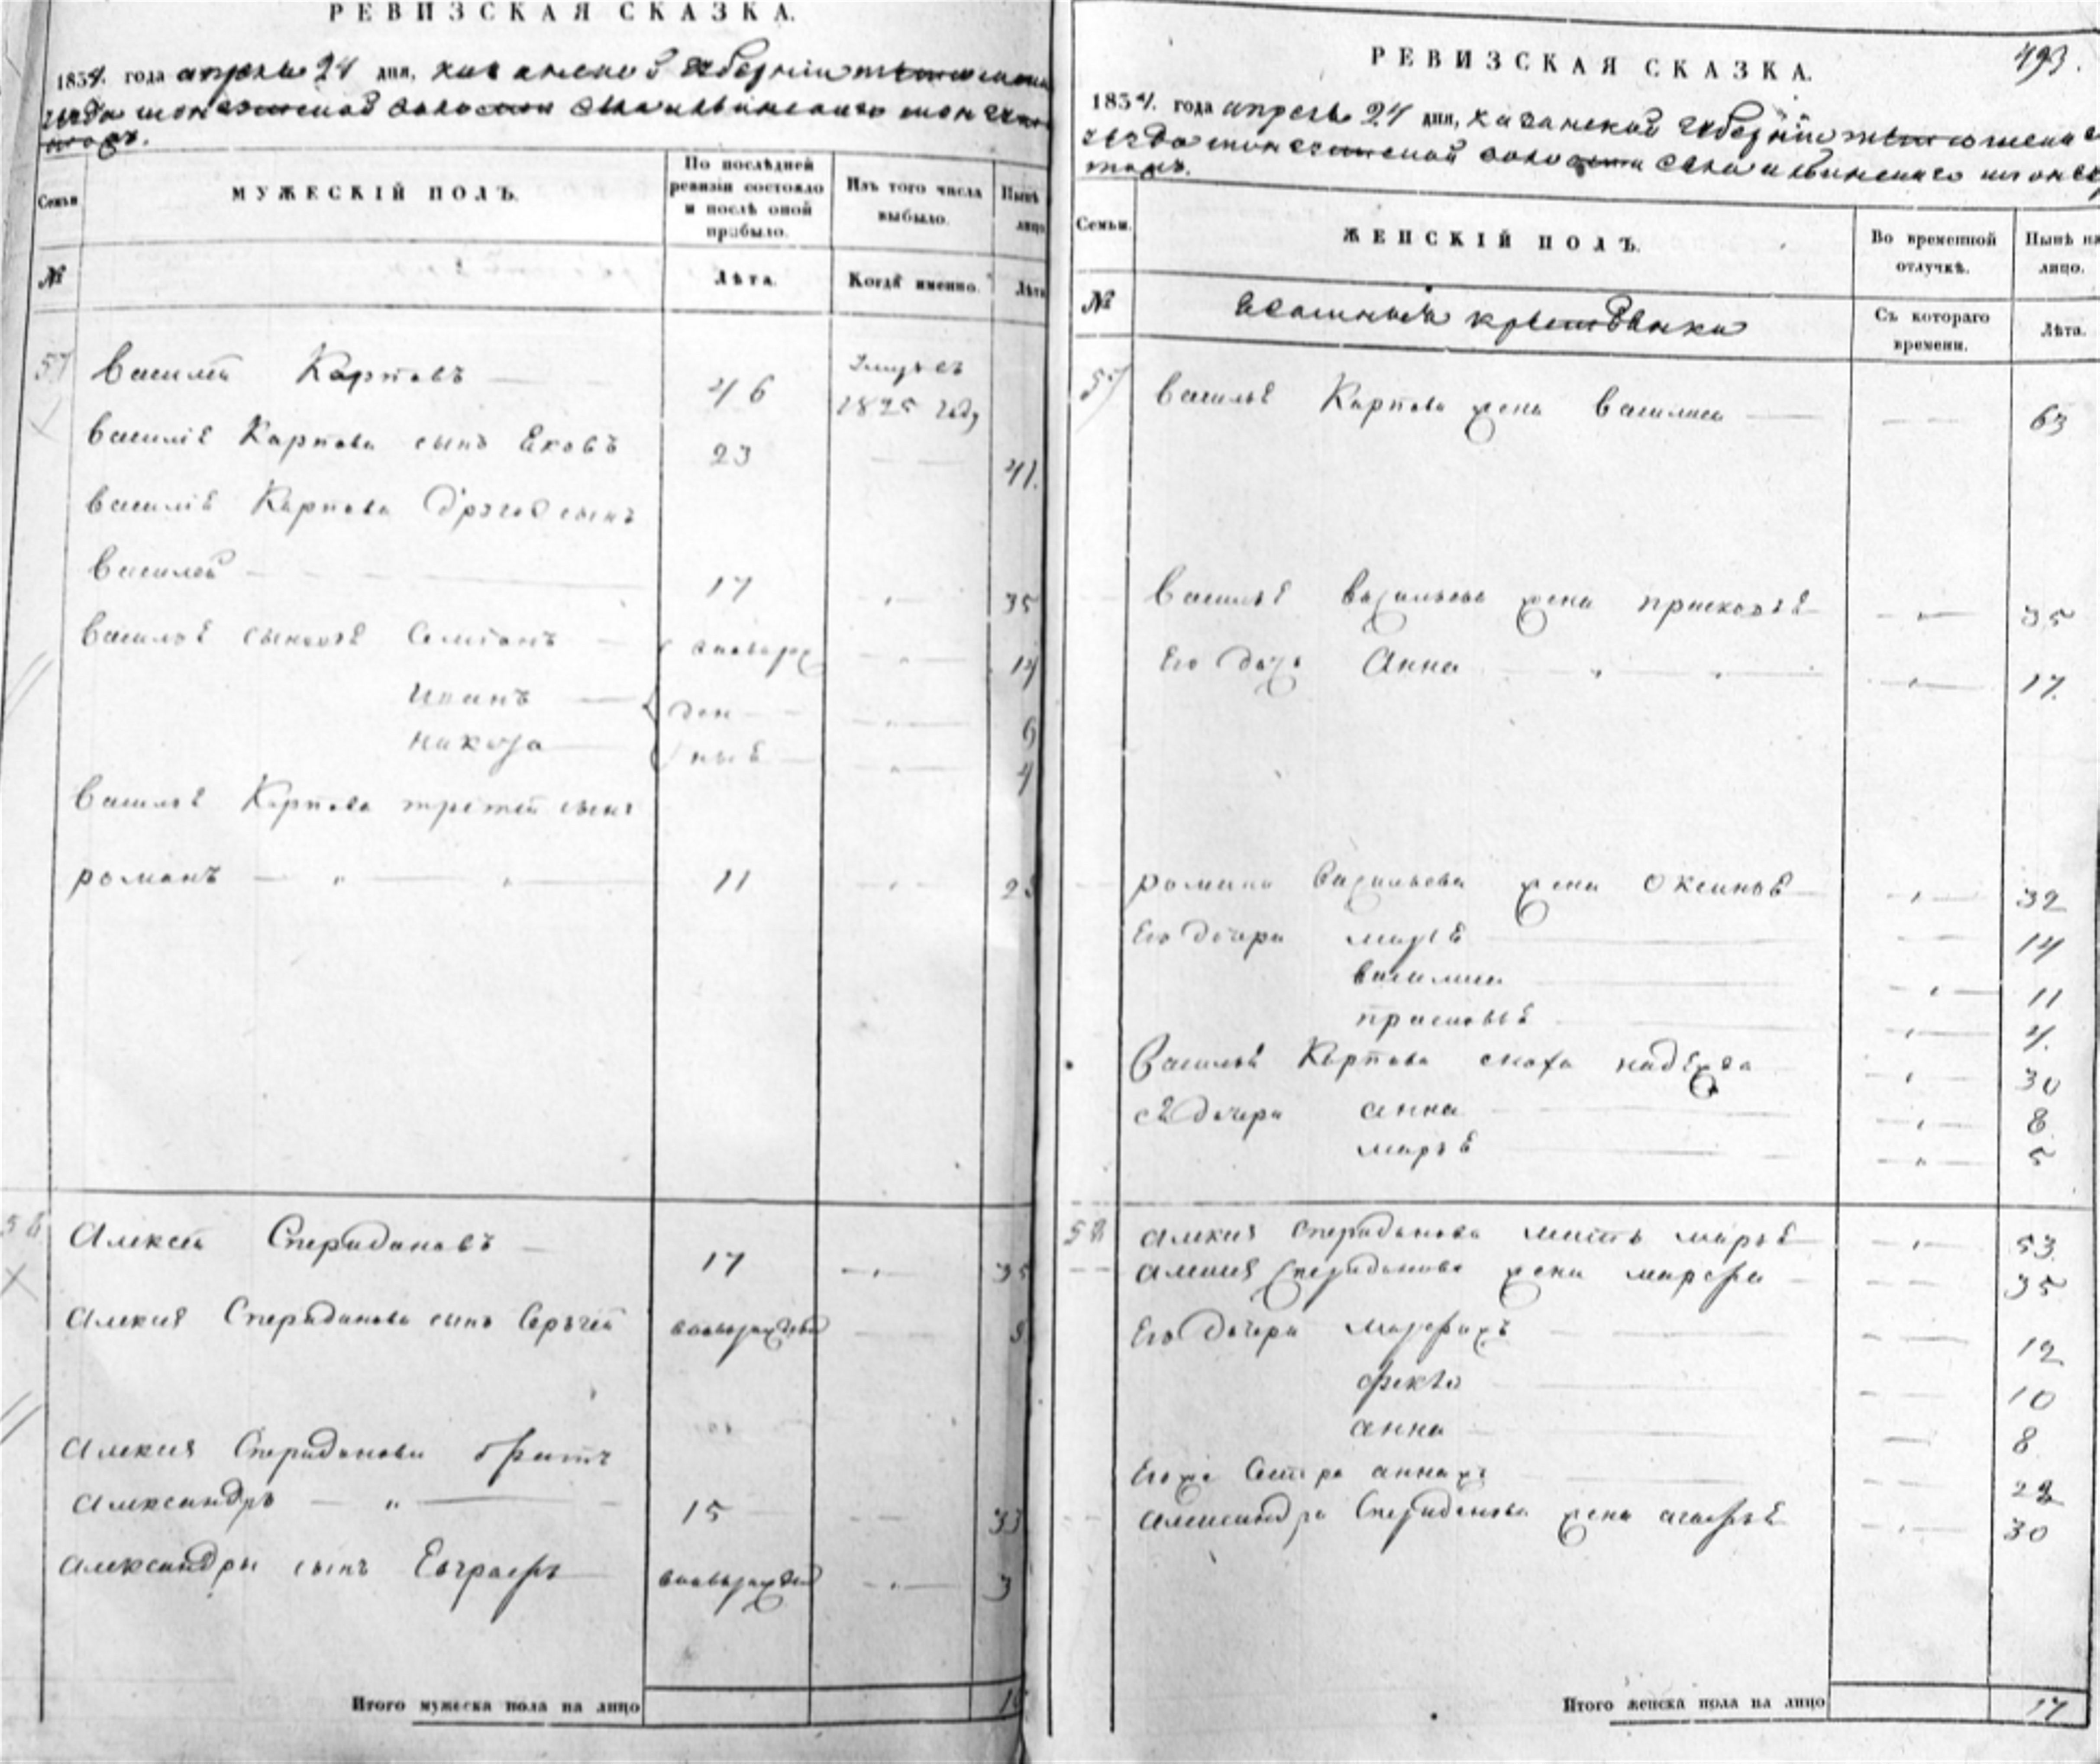 РЕВИЗСКАЯ СКАЗКА.
1834. года апреля 24 дня, казанской губернии
уезда волости
Семьи
МУЖЕСКІЙ ПОЛЪ.
По послѣдней ревизіи состояло и послѣ оной прибыло.
Изъ того числа выбыло.
Нынѣ лицо
№
Лѣта.
Когда именно.
Лѣта
57 Василей Карповъ 46 Умре въ 1825 году
Василіе Карпова сынъ Яковъ 23 41.
Василіе Карпова другой сынъ
Василей 17 35
Василье сыновье Семіонъ 14
Иванъ 6
Никола 4
Василье Карпова третей сынъ
романъ 11
58 Алексей Спиридоновъ 17 35
Алексея Спиридонова сынъ Сергей
Алексея Спиридонова братъ
Александръ 15 33
Александры сынъ Евграфъ 3
Итого мужеска пола на лицо
493.
РЕВИЗСКАЯ СКАЗКА.
1834. года апреля 24 дня, казанской губернии
уезда волости
Семьи.
ЖЕНСКІЙ ПОЛЪ.
Во временной отлучкѣ.
Нынѣ на лицо.
№
Ясашныя крестьянки
Съ котораго времени.
Лѣта.
57 Василье Карпова жена Василиса 63
Василье Васильева жена прасковье 35
Его дочь Анна 17.
романа Васильева жена Оксинье 32
Его дочери марье 14
василиса 11
прасковье 4.
Василье Карпова сноха надежда 30
ее дочери анна 8
марье 5
58 Алексея Спиридонова мать марье 53.
Алексея Спиридонова жена марфа 35
Его дочери 12
фекла 10
анна 8
Его же Сестра
Александра Спиридонова жена агафье 30
Итого женска пола на лицо 17